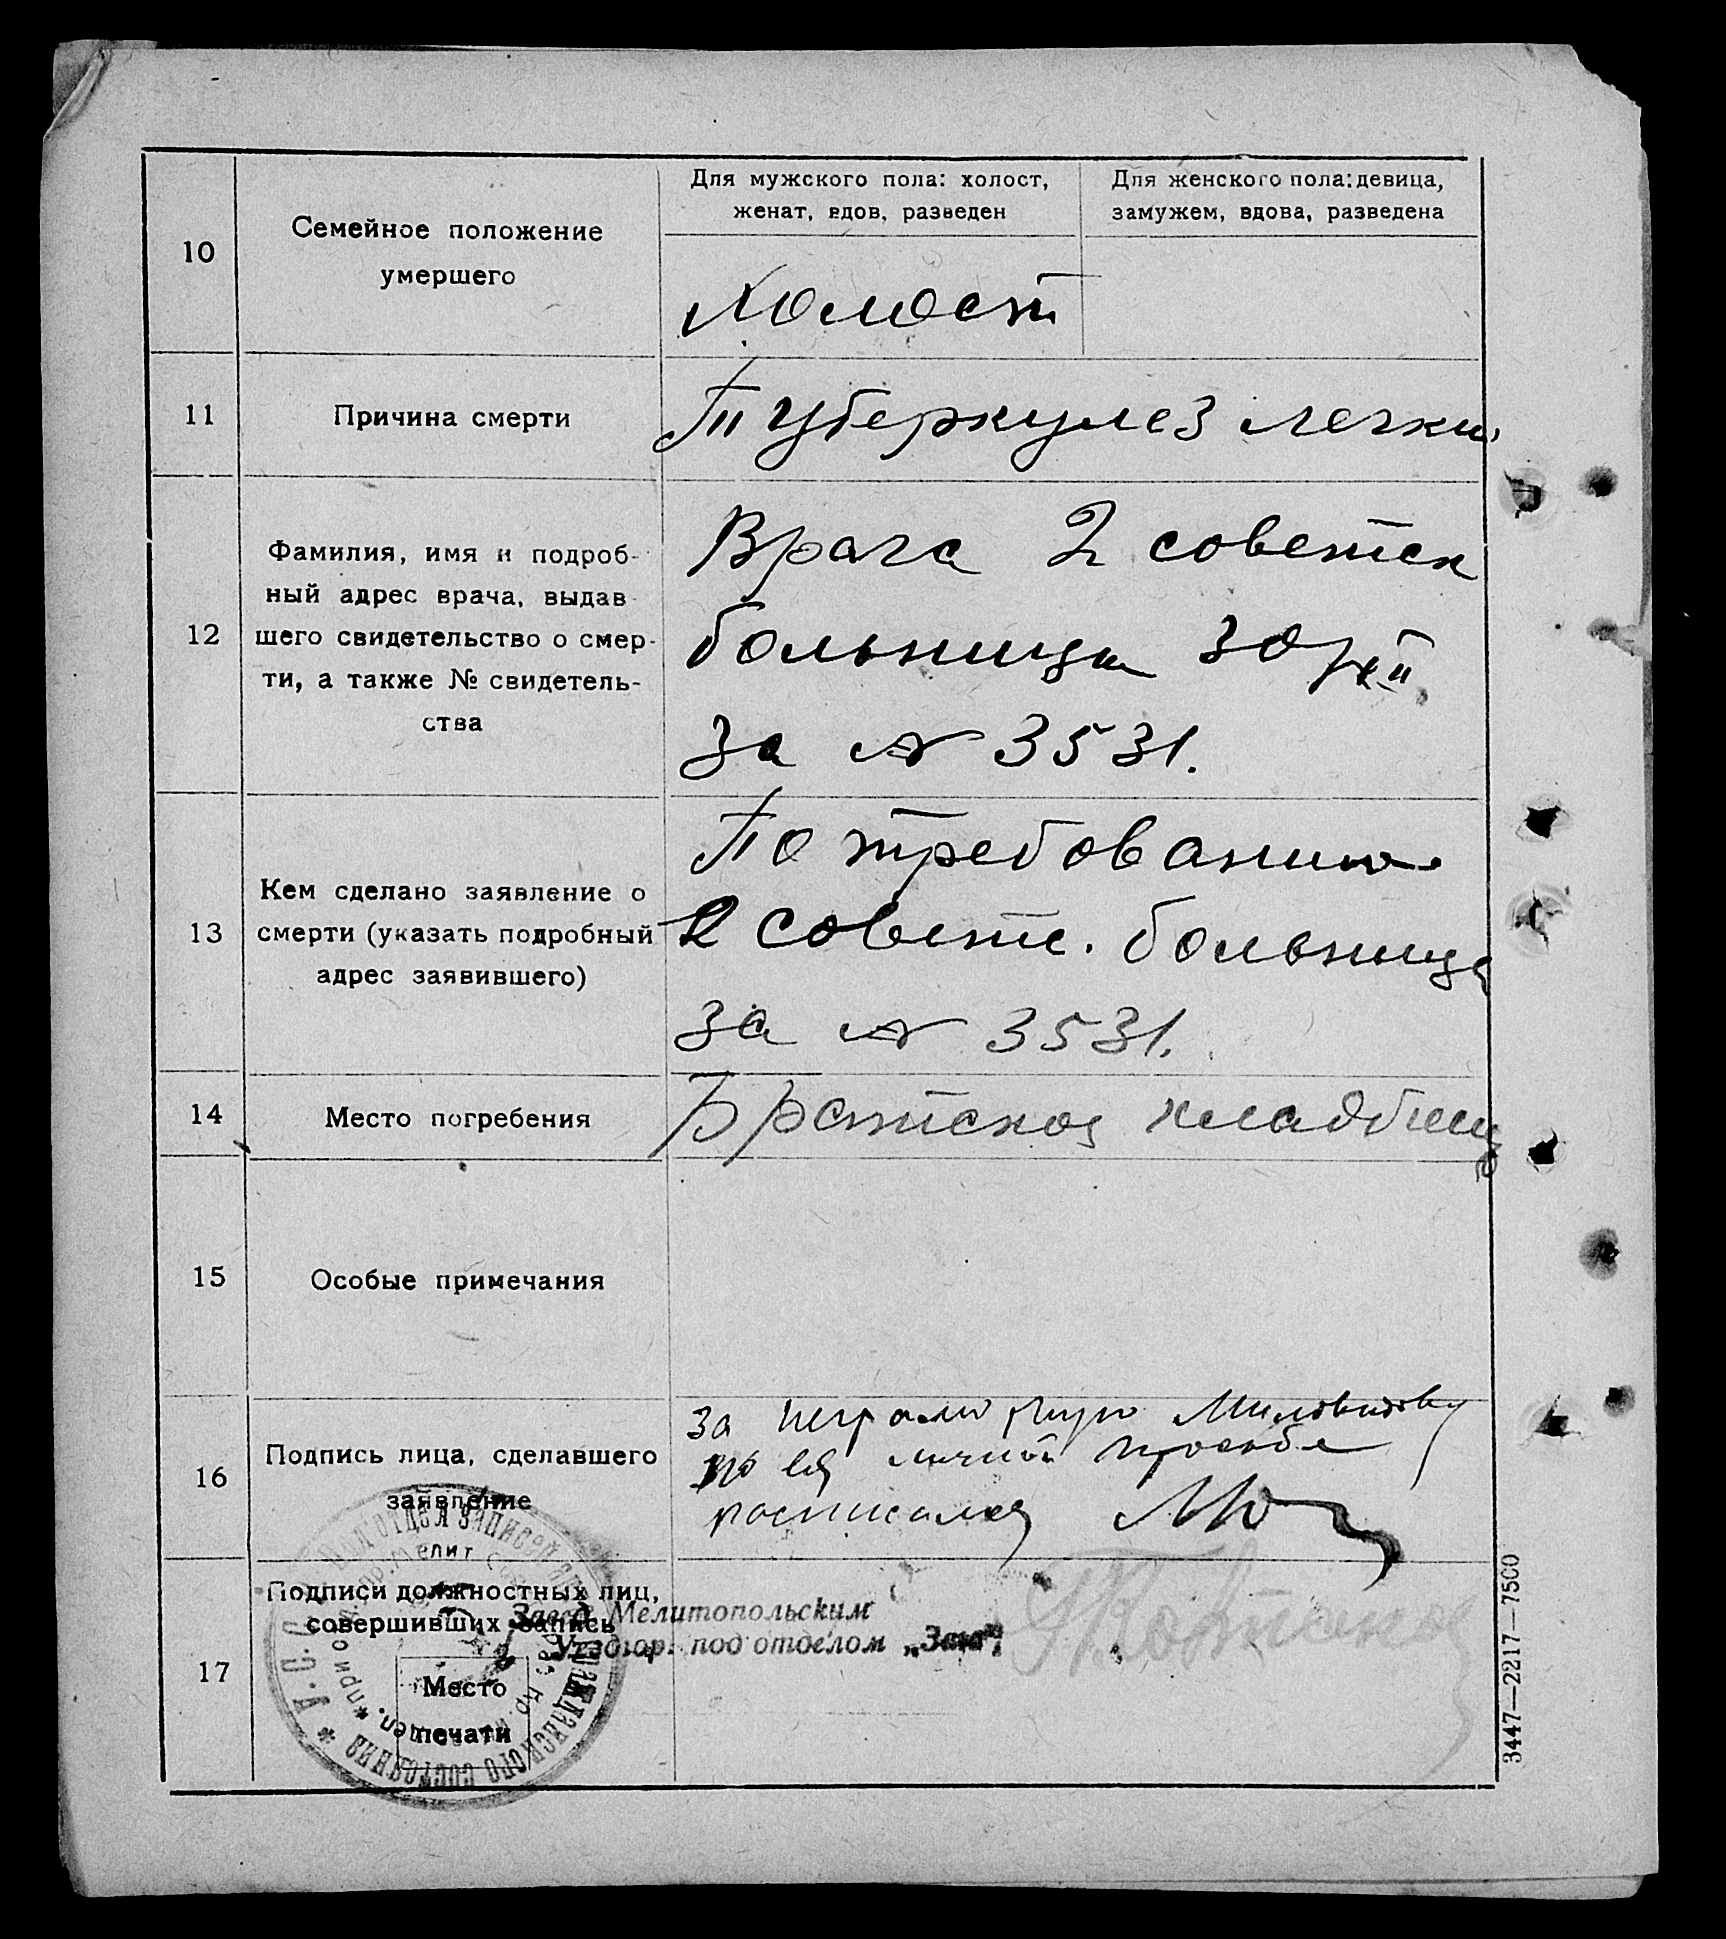 10
Семейное положение
умершего
Для мужского пола: холост,
женат, вдов, разведен
Для женского пола: девица,
замужем, вдова, разведена
Холост
11
Причина смерти
Туберкулез легких
12
Фамилия, имя и подроб-
ный адрес врача, выдав
шего свидетельство о смер-
ти, а также № свидетель-
ства
Врача 2 советск
больницы 30/XII
за № 3531.
13
Кем сделано заявление о
смерти (указать подробный
адрес заявившего)
По требованию
2 советс. больницы
за № 3531.
14
Место погребения
Братское кладбище
15
Особые примечания
16
Подпись лица, сделавшего
заявление
За неграмотную Миловидову
по ея личной просьбе
расписался
17
Подписи должностных лиц,
совершивших запись
Завед. Мелитопольским
под отделом „Загс"
Место
печати
ПОДОТДЕЛ ЗАПИСЕЙ ГРАЖДАНСКОГО СОСТОЯНИЯ
3447—2217—7500